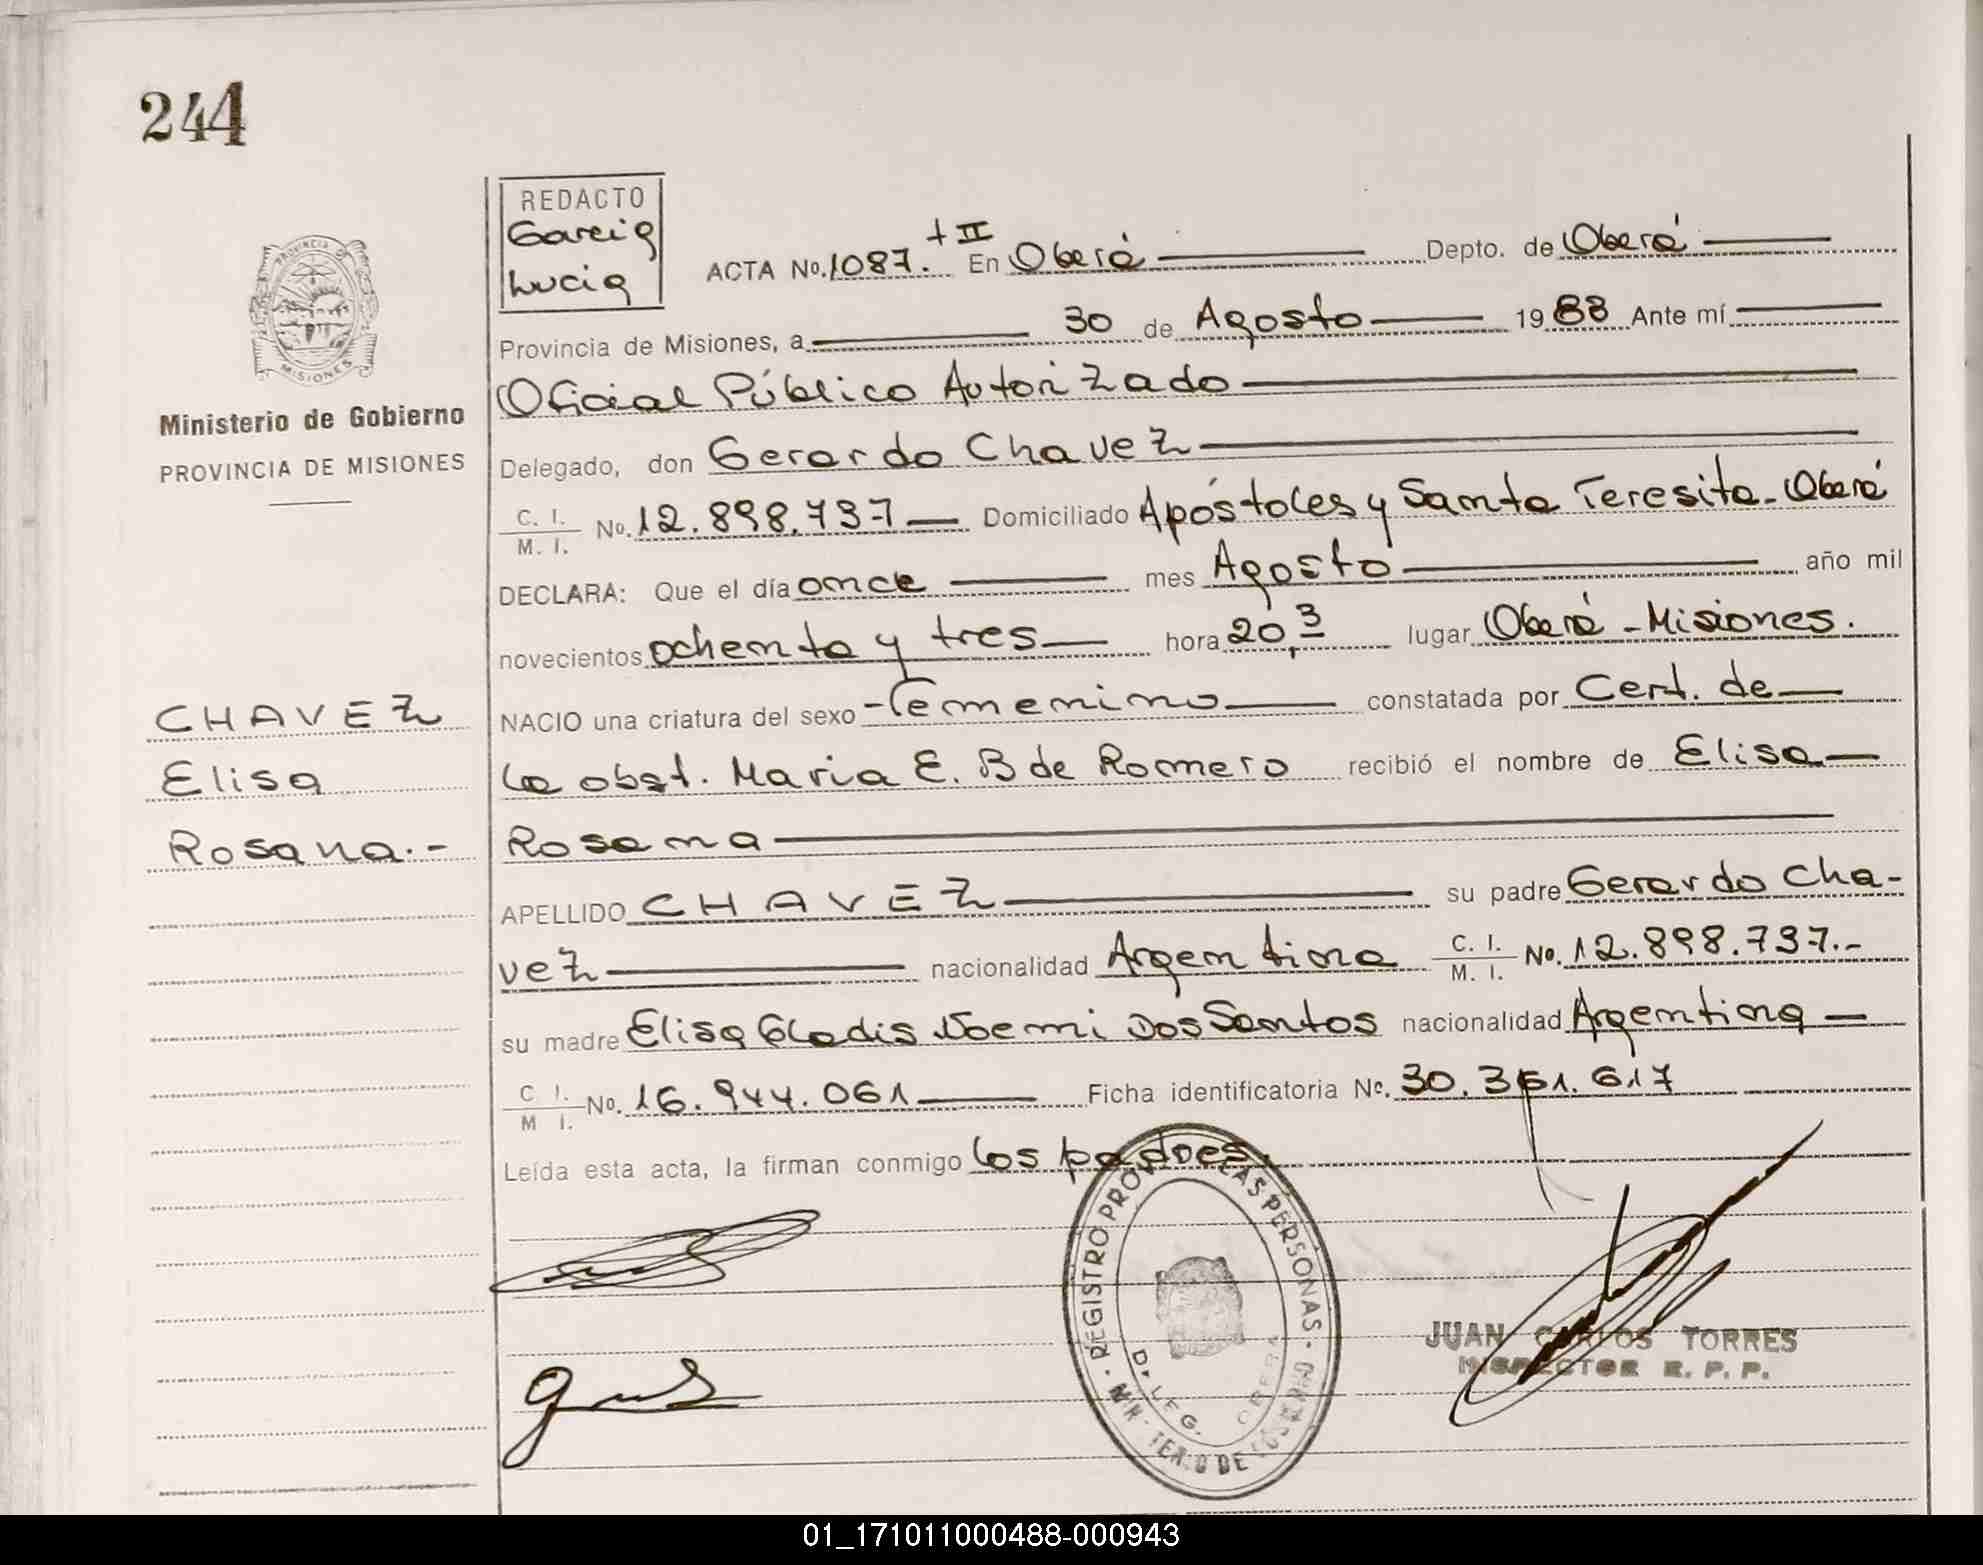 244
REDACTO
Garcia
Lucia
ACTA No. 1087. + II En Oberá Depto. de Oberá
Provincia de Misiones, a 30 de Agosto 1988 Ante mí
Oficial Público Autorizado
Ministerio de Gobierno
PROVINCIA DE MISIONES
Delegado, don Gerardo Chavez
C. I. / M. I. No. 12.898.737 Domiciliado Apóstoles y Santa Teresita - Oberá
DECLARA: Que el día once mes Agosto año mil
novecientos ochenta y tres hora 20,3 lugar Oberá - Misiones.
CHAVEZ
NACIO una criatura del sexo Femenino constatada por Cert. de
Elisa
la obst. Maria E. B de Romero recibió el nombre de Elisa
Rosana.-
Rosana
APELLIDO CHAVEZ su padre Gerardo Cha-
vez nacionalidad Argentina C. I. / M. I. No. 12.898.737.-
su madre Elisa Gladis Noemi Dos Santos nacionalidad Argentina
C I. / M I. No. 16.944.061 Ficha identificatoria No. 30.361.617
Leída esta acta, la firman conmigo los padres.
PROVINCIA DE MISIONES
JUAN CARLOS TORRES
INSPECTOR R. P. P.
01_171011000488-000943